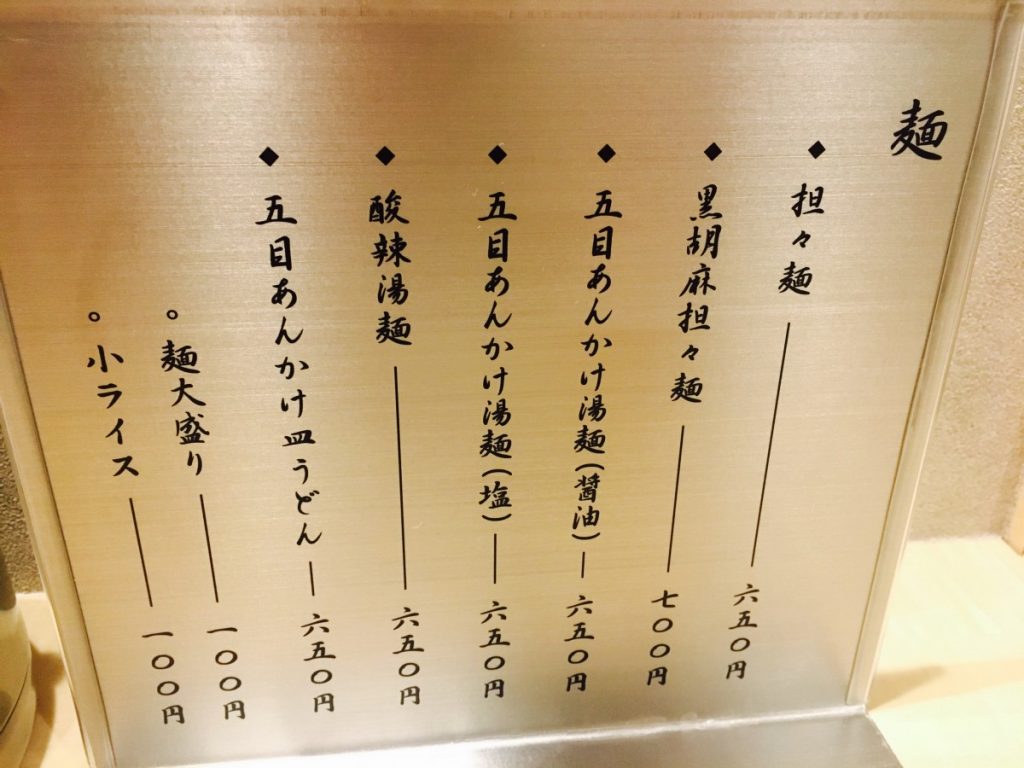 麺
◆ 担々麺 ── 六五〇円
◆ 黒胡麻担々麺 ── 七〇〇円
◆ 五目あんかけ湯麺(醤油) ── 六五〇円
◆ 五目あんかけ湯麺(塩) ── 六五〇円
◆ 酸辣湯麺 ── 六五〇円
◆ 五目あんかけ皿うどん ── 六五〇円
○ 麺大盛り ── 一〇〇円
○ 小ライス ── 一〇〇円